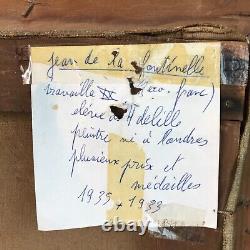 jean de la fontinelle
travaille XX (eco. franc)
élève de H delille
peintre né à londres
plusieux prix et
médailles
1935 + 1939